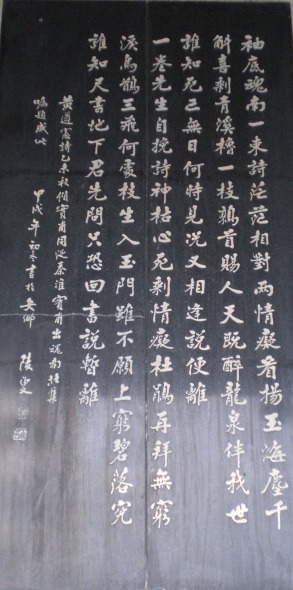 袖底魂南一束詩茫茫相對兩情癡看揚玉海塵千
斛喜剩青溪櫓一枝鶉首賜人天既醉龍泉伴我世
誰知死亡無日何時見況又相逢說便離
一卷先生自挽詩神枯心死剩情癡杜鵑再拜無窮
淚烏鵲三飛何處枝生入玉門雖不願上窮碧落究
誰知尺書地下君先問只恐回書說暫離
黃遵憲詩乙未秋偕實甫同泛秦淮實甫出魂南北集
囑題成此
甲戌年初冬書於